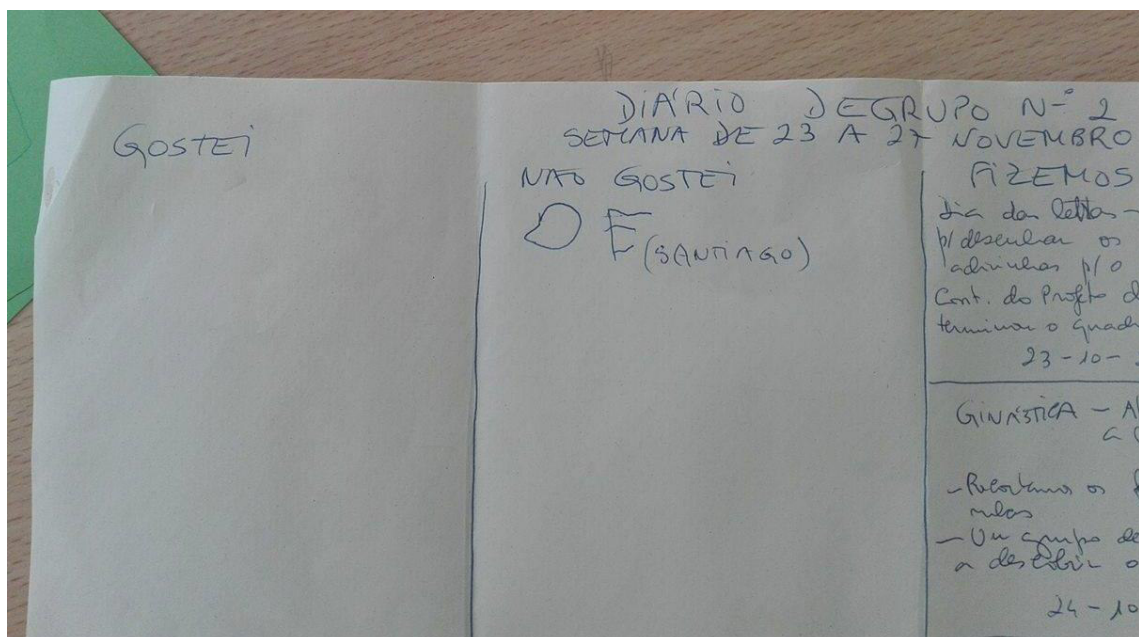 DIÁRIO DE GRUPO Nº 2
SEMANA DE 23 A 27 NOVEMBRO
GOSTEI
NÃO GOSTEI
O E
(SANTIAGO)
FIZEMOS
dia das letras -
p/ desenhar os
adivinhas p/ o
Cont. do Projeto d
terminar o quad
23-10-
GINÁSTICA - A
a
- Recortamos os
- Um grupo de
a descobrir o
24-10